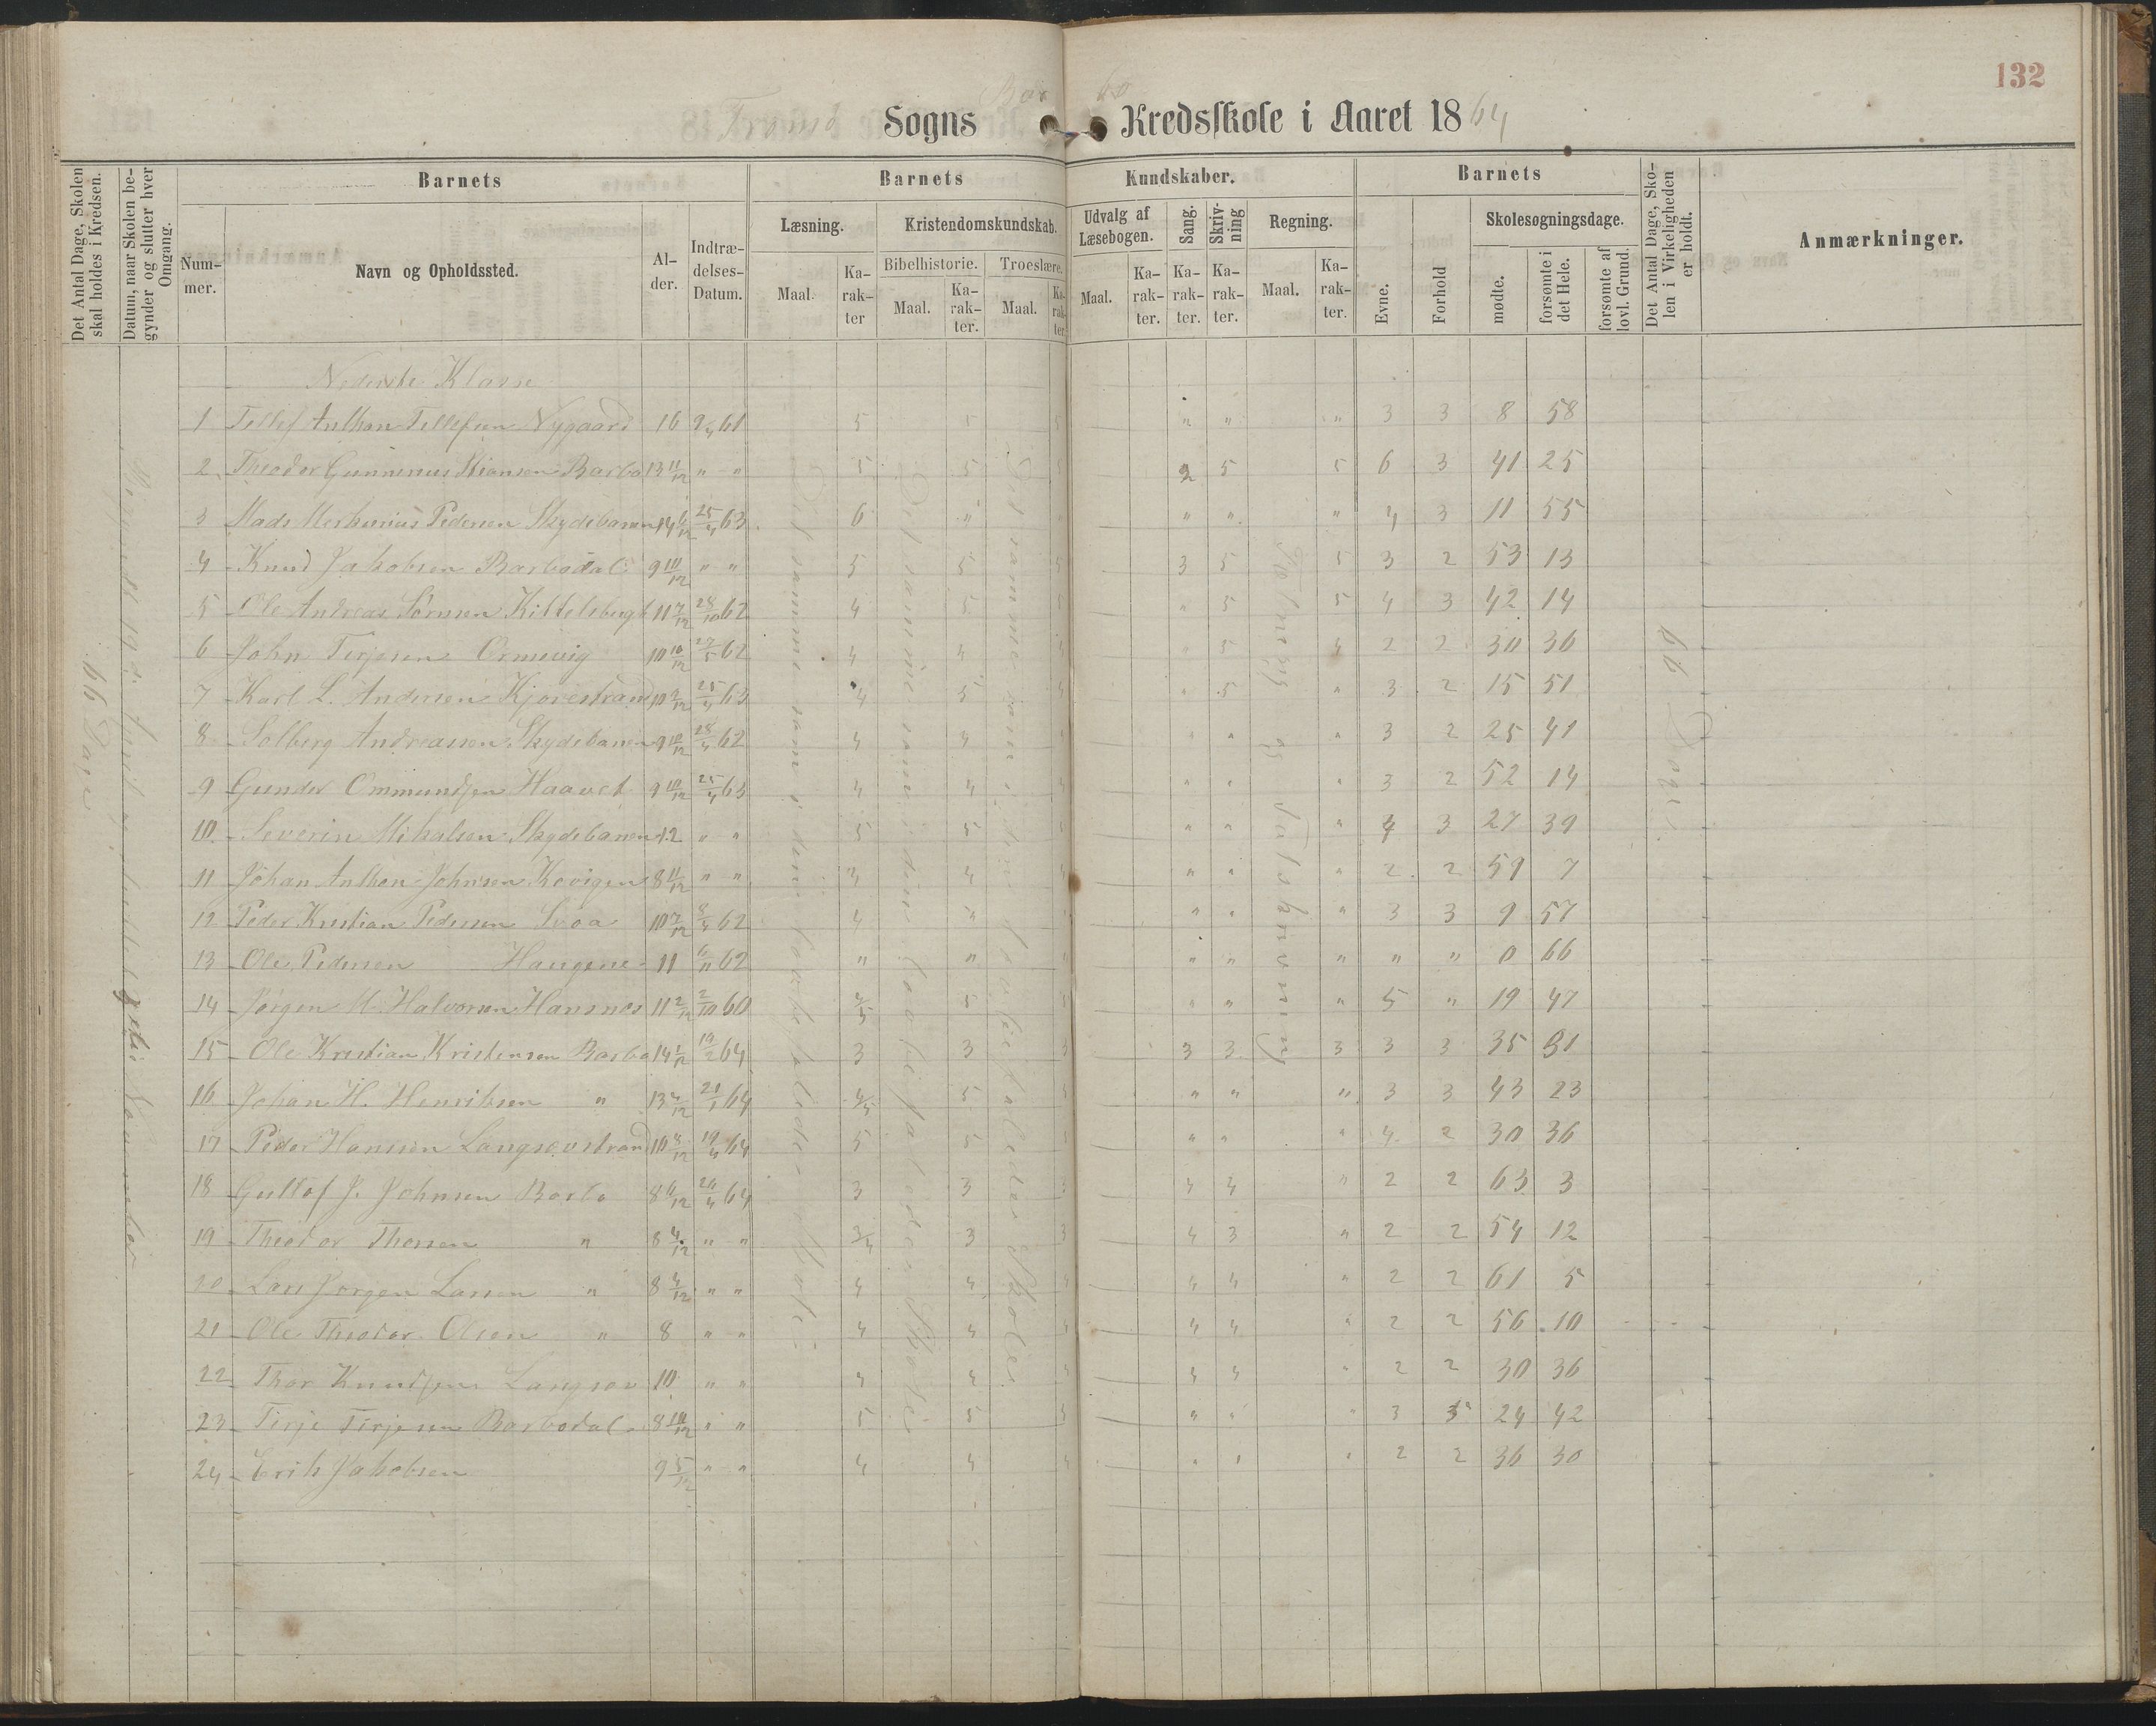 132
Tromø Sogns Barbo Kredsskole i Aaret 1864
Det Antal Dage, Skolen skal holdes i Kredsen.
Datum, naar Skolen begynder og slutter hver Omgang.
Barnets
Nummer.
Navn og Opholdssted.
Alder.
Indtrædelses-Datum.
Barnets Kundskaber.
Læsning.
Maal.
Karakter
Kristendomskundskab.
Bibelhistorie.
Maal.
Karakter.
Troeslære.
Maal.
Karakter.
Udvalg af Læsebogen.
Maal.
Karakter.
Sang.
Karakter.
Skrivning
Karakter.
Regning.
Maal.
Karakter.
Barnets
Evne.
Forhold
Skolesøgningsdage.
mødte.
forsømte i det Hele.
forsømte af lovl. Grund.
Det Antal Dage, Skolen i Virkeligheden er holdt.
Anmærkninger.
66 Dage
Nederste Klasse
1 Tellef Anthon Tellefsen Nygaard 16 9/4 61 5 5 5 " " " 3 3 8 58
2 Theodor Gunnerius Stiansen Barbo 13 11/12 " " 5 5 5 2 5 5 6 3 41 25
3 Mads Merkurius Pedersen Skydebanen 14 6/12 25/4 63 6 " " " " 4 3 11 55
4 Knud Jakobsen Barbodal 9 10/12 " " 5 5 5 3 5 5 3 2 53 13
5 Ole Andreas Sørensen Kittelsbugt 11 7/12 28/10 62 4 5 5 " 5 5 4 3 42 14
6 John Terjesen Ormevig 10 10/12 27/5 62 4 4 4 " 5 4 2 2 30 36
7 Karl L. Andersen Kjorestrand 10 2/12 25/4 63 4 5 4 " 5 " 3 2 15 51
8 Solberg Andreassen Skydebanen 9 10/12 28/4 62 4 4 " " " 3 2 25 41
9 Gunder Ommundsen Haavet 9 10/12 25/4 63 4 4 " " " 3 2 52 14
10 Severin Mikalsen Skydebanen 12 " " 5 5 " " " 4 3 27 39
11 Johan Anthon Johnsen Kovigen 8 11/12 " " 4 4 4 " " " 2 2 59 7
12 Peder Kristian Pedersen Svoa 10 7/12 8/4 62 4 " " " " 3 3 9 57
13 Ole Pedersen Haugene 11 6/11 62 " " " " " " " " 0 66
14 Jørgen M. Halvorsen Hansnes 11 2/12 2/10 60 4/5 5 5 " " " 5 " 19 47
15 Ole Kristian Kristensen Barbo 14 2/12 19/2 64 3 3 3 3 3 3 3 3 35 31
16 Johan H. Henriksen " 13 4/12 21/1 64 4/5 5 " " " 3 3 43 23
17 Peder Hansen Langsevstrand 10 8/12 19/4 64 5 5 5 " " " 4 2 30 36
18 Gustof J. Johnsen Barbo 8 6/12 26/4 64 3 3 3 4 4 " 2 2 63 3
19 Theodor Thorsen " 8 4/12 " " 3/4 3 3 4 3 " 2 2 54 12
20 Lars Jørgen Larsen " 8 4/12 " " 4 4 4 4 4 " 2 2 61 5
21 Ole Theodor Olsen " 8 " " 4 4 4 4 4 " 2 2 56 10
22 Thor Knudsen Langsev 10 " " 4 4 4 4 4 " 2 2 30 36
23 Terje Terjesen Barbodal 8 10/12 " " 5 5 5 " " " 3 3 24 42
24 Erik Jakobsen 9 5/12 " " 4 4 4 " " " 2 2 36 30
Det samme som i den faste Skole
Det samme som i den Skole
Det samme som i den Skole
og Talskrivning
66 Dage